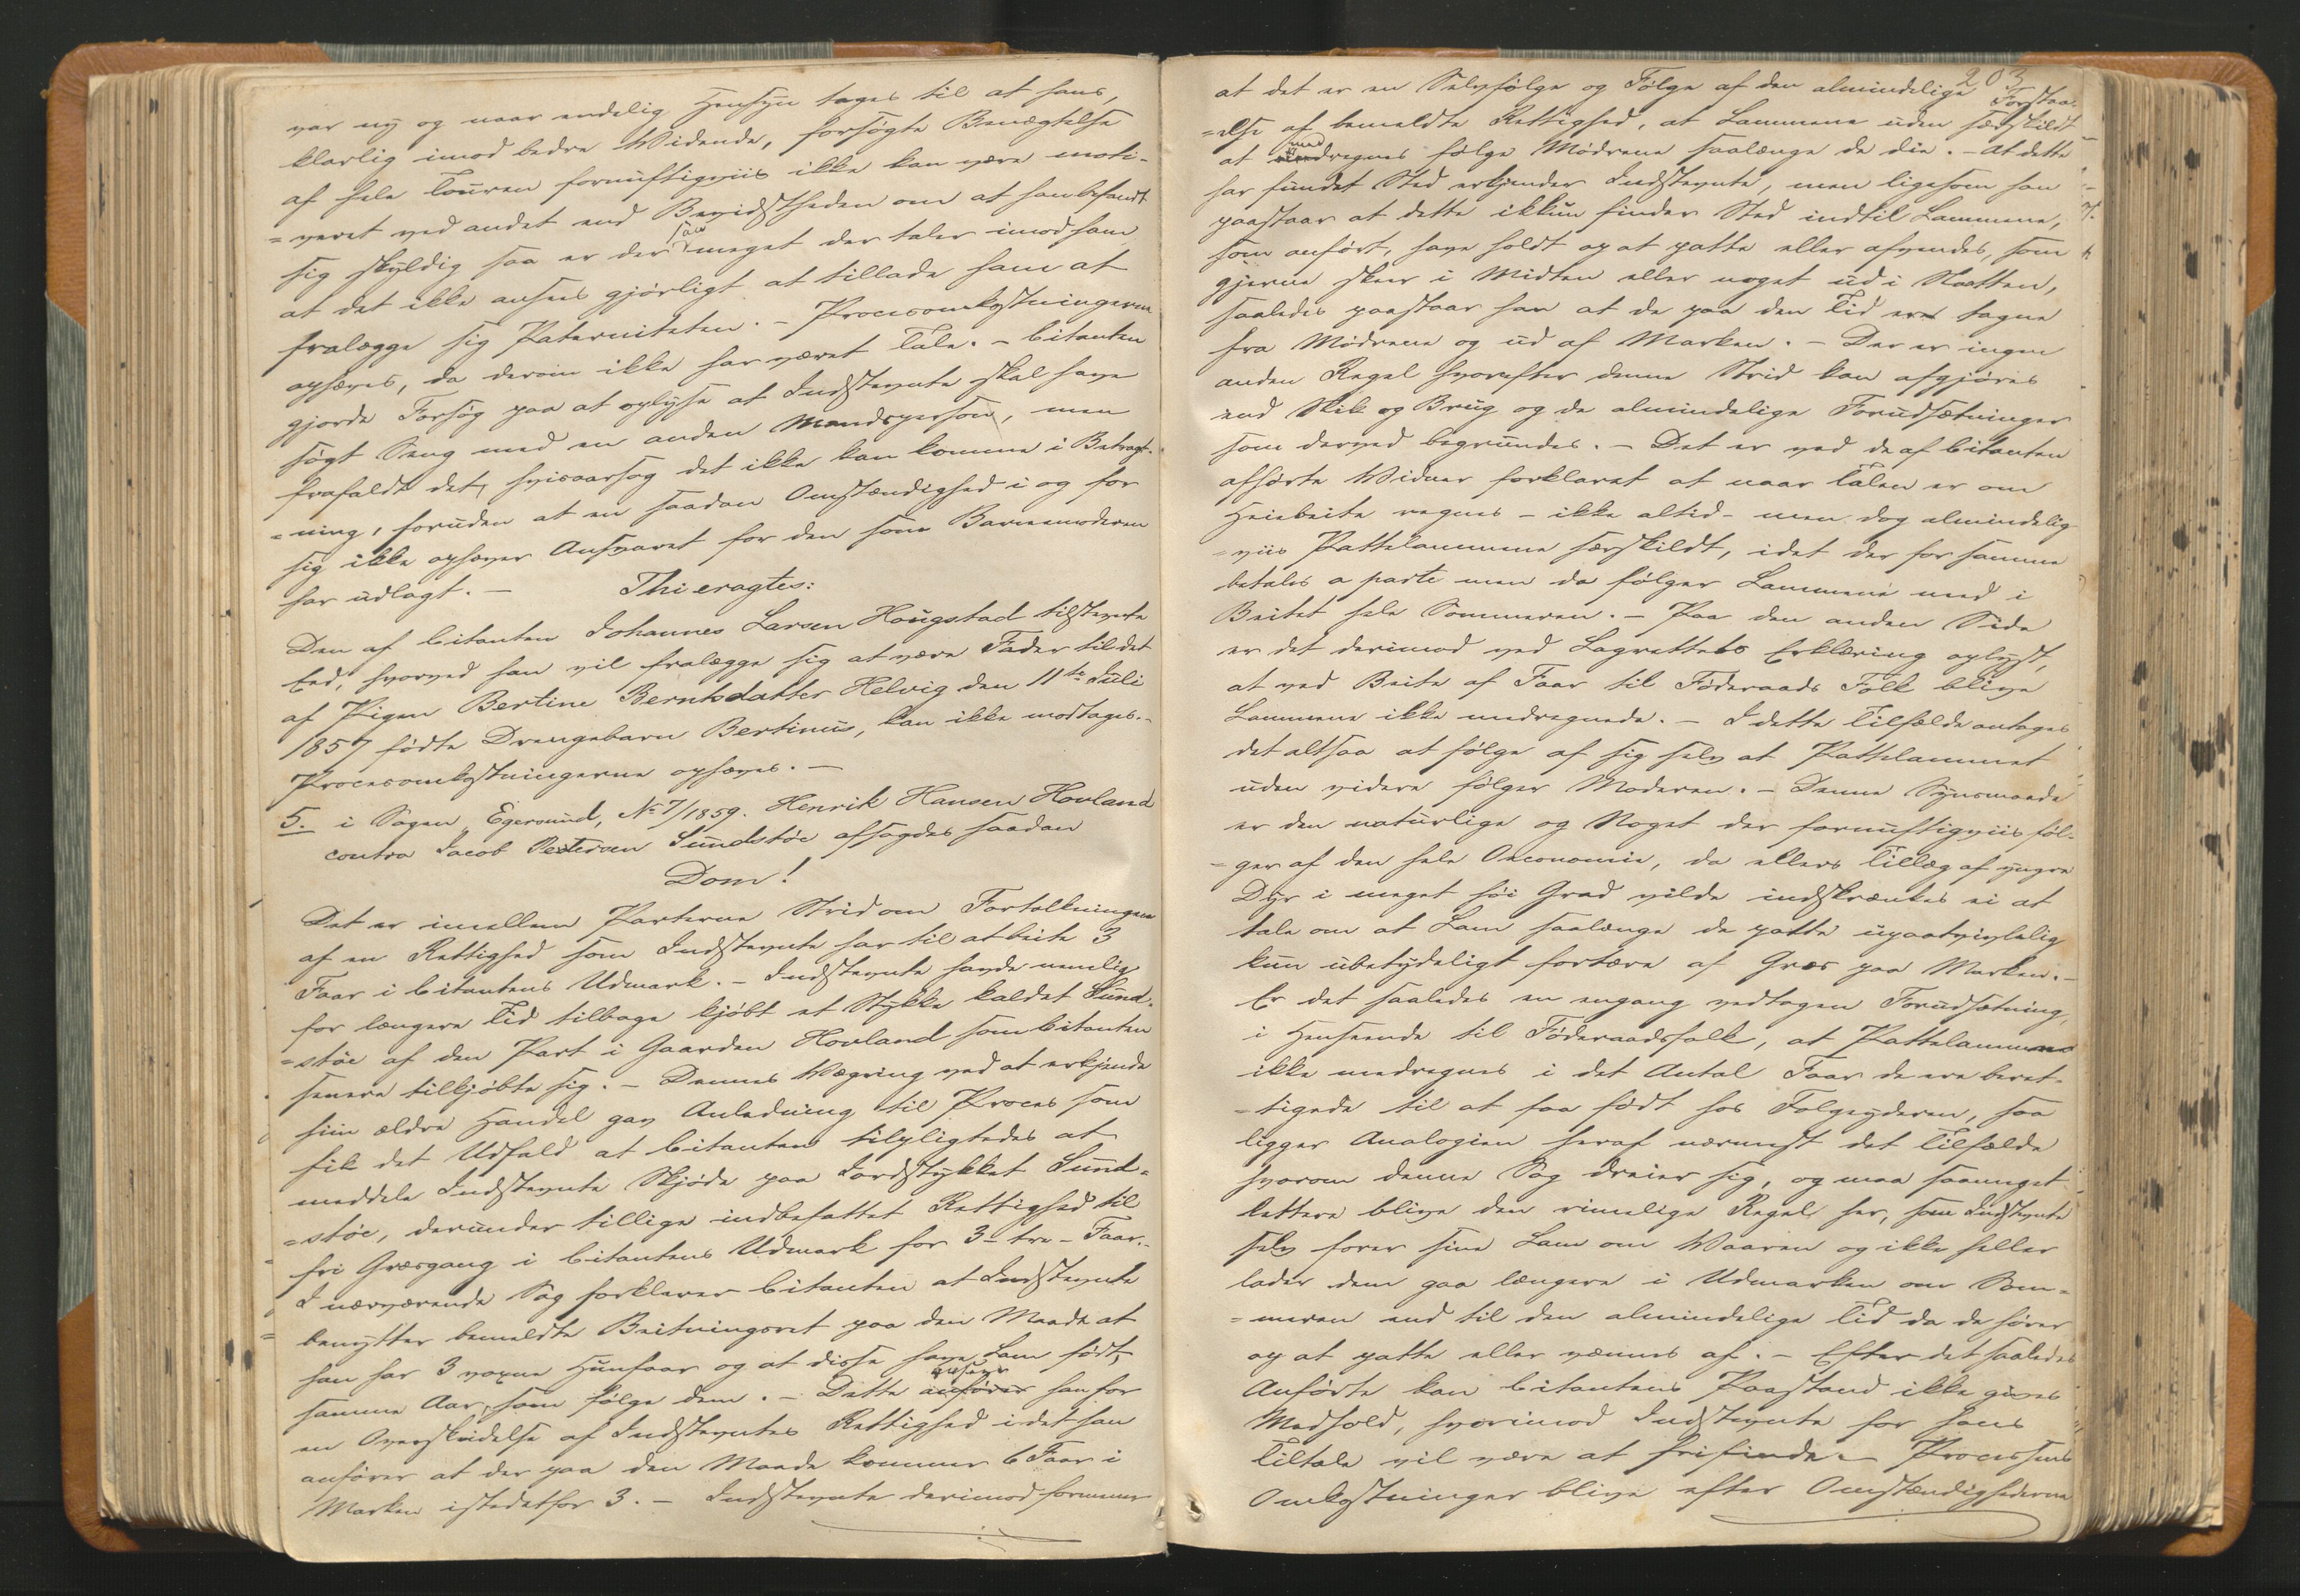 var ny og naar endelig Hensyn tages til at hans,
klarlig imod bedre Vidende, forsøgte Benægtelse
af hele Touren fornuftigviis ikke kan være moti-
=veret ved andet end Bevidstheden om at han befandt
sig skyldig saa er der saa meget der taler imod ham
at det ikke ansees gjørligt at tillade ham at
fralægge sig Paterniteten. - Procesomkostningerne
ophæves, da derom ikke har været Tale. - Citanten
gjorde Forsøg paa at oplyse at Indstevnte skal have
søgt Seng med en anden Mandsperson, men
frafaldt det, hvisaarsag det ikke kan komme i Betragt-
=ning, foruden at en saadan Omstændighed i og for
sig ikke ophæver Ansvaret for den som Barnemoderen
har udlagt. - Thi eragtes:
Den af Citanten Johannes Larsen Hougstad tilstevnte
Eed, hvorved han vil fralægge sig at være Fader til det
af Pigen Bertine Berntsdatter Helvig den 11te Juli
1857 fødte Drengebarn Bertinus, kan ikke modtages. -
Procesomkostningerne ophæves. -
5. i Sagen, Egersund, No 7/1859. Henrik Hansen Hovland
contra Jacob Petersen Sundstøe afsagdes saadan
Dom!
Det er imellem Parterne Strid om Fortolkningen
af en Rettighed som Indstevnte har til at beite 3
Faar i Citantens Udmark. - Indstevnte havde nemlig
for længere Tid tilbage kjøbt et Stykke kaldet Sund-
=støe af den Part i Gaarden Hovland som Citanten
senere tilkjøbte sig. - Dennes Vægring ved at erkjende
hiin ældre Handel gav Anledning til Proces som
fik det Udfald at Citanten tilpligtedes at
meddele Indstevnte Skjøde paa Jordstykket Sund-
=støe, derunder tillige indbefattet Rettighed til
fri Græsgang i Citantens Udmark for 3 - tre - Faar. -
I nærværende Sag forklarer Citanten at Indstevnte
benytter bemeldte Beitningsret paa den Maade at
han har 3 voxne Hunfaar og at disse have Lam født
samme Aar, som følge dem. - Dette anfører ansees han for
en Overskridelse af Indstevntes Rettighed idet han
anfører at der paa den Maade kommer 6 Faar i
Marken istedetfor 3. - Indstevnte derimod formener
203
at det er en Selvfølge og Følge af den almindelige Forstaa-
=else af bemeldte Rettighed, at Lammene uden særskildt
at medregnes følge Mødrene saalænge de die. - At dette
har fundet Sted erkjender Indstevnte, men ligesom han
paastaar at dette ikkun finder Sted indtil Lammene,
som anført, have holdt op at patte eller afvendes, som
gjerne skeer i Midten eller noget ud i Høsten,
saaledes paastaar han at de paa den Tid ere tagne
fra Mødrene og ud af Marken. - Der er ingen
anden Regel hvorefter denne Strid kan afgjøres
end Skik og Brug og de almindelige Forudsætninger
som derved begrundes. - Det er ved de af Citanten
afhørte Vidner forklaret at naar Talen er om
Heiebeite regnes - ikke altid - men dog almindelig-
=viis Pattelammene særskildt, idet der for samme
betales a parte men da følger Lammene med i
Beitet hele Sommeren. - Paa den anden Side
er det derimod ved Lagrettets Erklæring oplyst,
at ved Beite af Faar til Føderaads Folk blive
Lammene ikke medregnede. - I dette Tilfælde antages
det altsaa at følge af sig selv at Pattelammet
uden videre følger Moderen. - Denne Synsmaade
er den naturlige og Noget der fornuftigviis føl-
=ger af den hele Oeconomie, da ellers Tillæg af yngre
Dyr i meget høi Grad vilde indskrænkes ei at
tale om at Lam saalænge de patte upaatvivlelig
kun ubetydeligt fortære af Græs paa Marken. -
Er det saaledes en engang vedtagen Forudsætning,
i Henseende til Føderaadsfolk, at Pattelammene
ikke medregnes i det Antal Faar de ere beret-
=tigede til at faa født hos Folgeyderen, saa
ligger Analogien heraf nærmest det Tilfælde
hvorom denne Sag dreier sig, og maa saameget
lettere blive den rimelige Regel her, som Indstevnte
selv forer sine Lam om Vaaren og ikke heller
lader dem gaa længere i Udmarken om Som-
=meren end til den almindelige Tid da de hører
op at patte eller vænnes af. - Efter det saaledes
Anførte kan Citantens Paastand ikke gives
Medhold, hvorimod Indstevnte for hans
Tiltale vil være at frifinde. - Processens
Omkostninger blive efter Omstændighederne